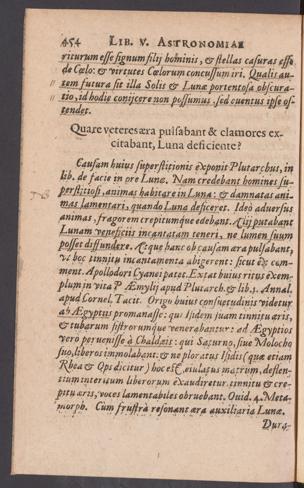 454 LIB. V. ASTRONOMIAE
riturum esse signum filij hominis, & stellas casuras esse
de Cœlo: & virtutes Cœlorum concussum iri. Qualis au-
tem futura sit illa Solis & Lunæ portentosa obscura-
tio, id hodie conijcere non possumus, sed euentus ipse os-
tendet.
Quare veteres æra pulsabant & clamores ex-
citabant, Luna deficiente?
Causam huius superstitionis exponit Plutarchus, in
lib. de facie in ore Lunæ. Nam credebant homines su-
perstitiosi, animas habitare in Luna: & damnatas ani-
mas lamentari, quando Luna deficeret. Ideò aduersus
animas, fragorem crepitumque edebant. Alij putabant
Lunam veneficiis incantatam teneri, ne lumen suum
posset diffundere. Atque hanc ob causam æra pulsabant,
vt hoc tinnitu incantamenta abigerent: sicut ex com-
ment. Apollodori Cyanei patet. Extat huius ritus exem-
plum in vita P. Æmylij apud Plutarch. & lib. 1. Annal.
apud Cornel. Tacit. Origo huius consuetudinis videtur
ab Ægyptiis promanasse: qui Isidem suam tinnitu æris,
& tubarum sistrorumque venerabantur: ad Ægyptios
verò peruenisse à Chaldæis: qui Saturno, siue Molocho
suo, liberos immolabant: & ne ploratus Isidis (quæ etiam
Rhea & Ops dicitur) hoc est, eiulatus matrum, deflen-
tium interitum liberorum exaudiretur, tinnitu & cre-
pitu æris, voces lamentabiles obruebant. Ouid. 4. Meta-
morph. Cum frustrà resonant æra auxiliaria Lunæ.
Dura-